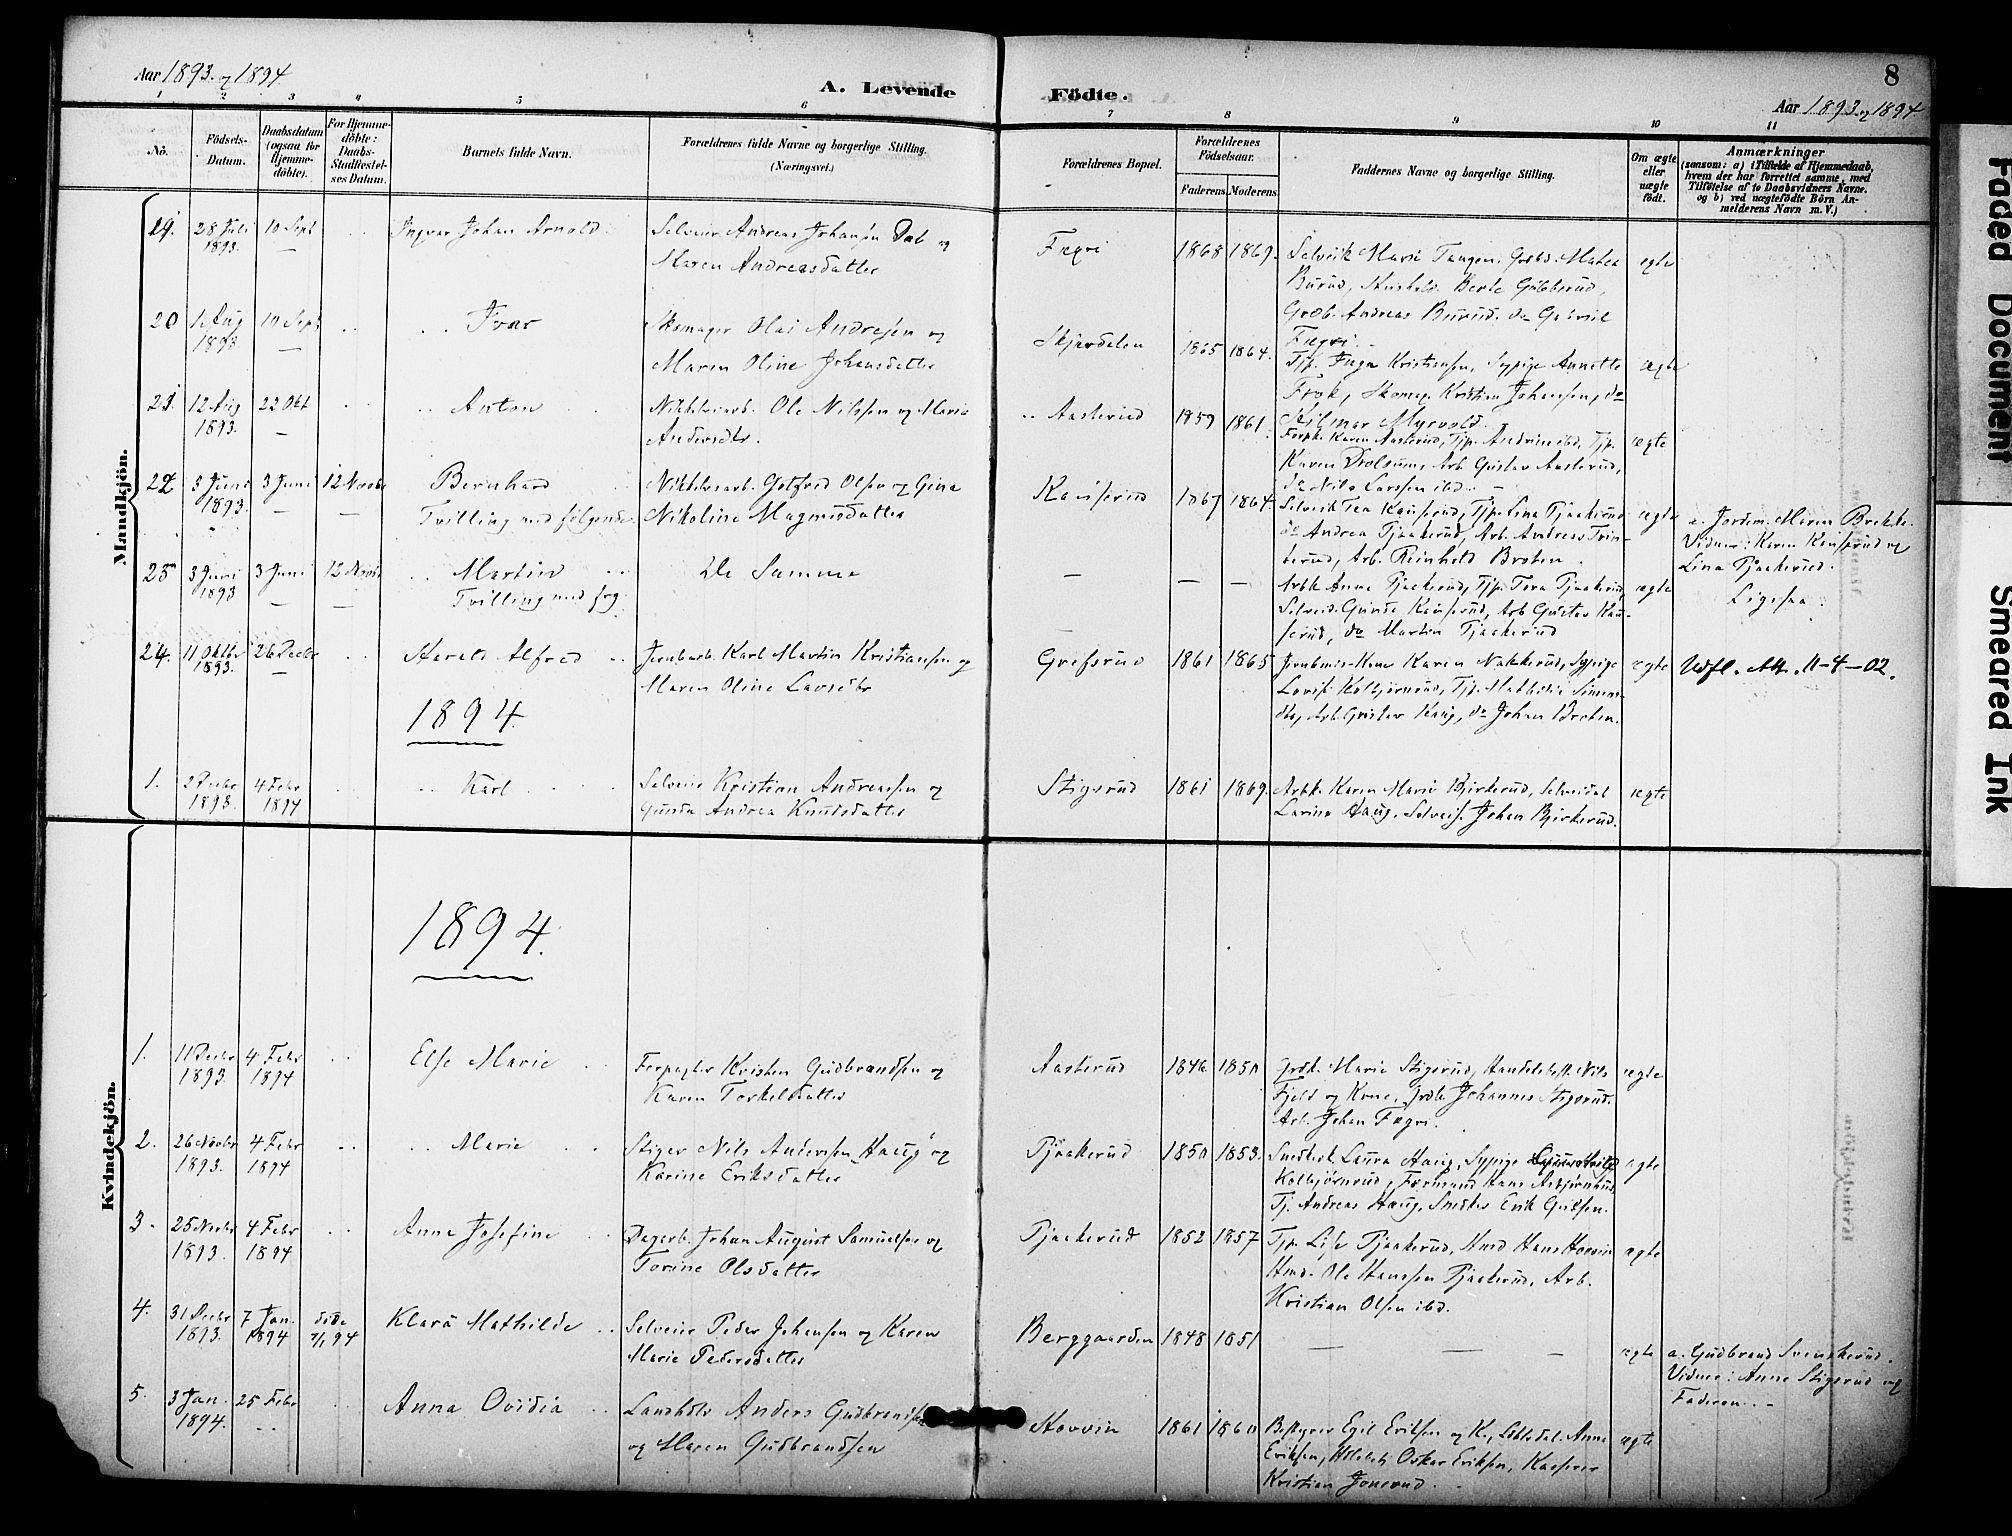 Aar 1893. og 1894
A. Levende
Födte.
8
Aar 1893. og 1894
1 2 3 4 5 6 7 8 9 10 11
No.
Födsels-
Datum.
Daabsdatum
(ogsaa for
Hjemme-
döbte).
For Hjemme-
döbte:
Daabs-
Stadfæstel-
ses Datum.
Barnets fulde Navn.
Forældrenes fulde Navne og borgerlige Stilling.
(Næringsvei.)
Forældrenes Bopæl.
Forældrenes
Födselsaar.
Faderens. Moderens.
Faddernes Navne og borgerlige Stilling.
Om ægte
eller
uægte
födt.
Anmærkninger
(saasom: a) i Tilfælde af Hjemmedaab,
hvem der har forrettet samme, med
Tilföielse af to Daabsvidners Navne.
og b) ved uægtefödte Börn An-
melderens Navn m. V.)
Mandkjön.
19. 28 Juli 1893. 10 Sept
Ingvar Johan Arnold
Selveier Andreas Johansen og
Maren Andreasdatter
Fægri 1868 1869.
Selveik Marie Tangen,
Burud, Berte Gubberud,
Andreas Burud. do Gabriel
Fægri.
ægte
20 1 Aug 1893 10 Sept
Ivar
Skomager Olai Andresen og
Maren Oline Johansdatter
Skjærdalen 1865 1864.
Tjp. Inga Kristiansen, Sypige Annette
Frok, Skomag. Kristian Johansen, do
Hilmar Myrvold.
ægte
21. 12 Aug 1893. 22 Okt
Anton
Nikkelverkarb. Ole Nilssen og Marie
Andersdtr.
Aasterud 1859 1861.
Forpk. Karen Aasterud, Tjp. Andrine ibd, Tjp.
Karen Arb. Gustav Aasterud,
do Nils Larssen ibd.
ægte
22 3 Juni 1893. 3 Juni 12 Novbr
Bernhard
Tvilling med følgende
Nikkelverkarb. Gotfred Olsen og Gina
Nikoline Magnusdatter
Kauserud 1867 1864.
Selveik Tea Kauserud, Tjp. Lina Tjaakerud
do Andrea Tjaakerud, Arb. Andreas
Arb. Reinhold Braten.
ægte
a. Jordm. Maren Brekke.
Vidner: Karen Kauserud og
Lina Tjaakerud.
23 3 Juni 1893 3 Juni 12 Novbr
Martin
Tvilling med frg.
De Samme
Arbk Anne Tjaakerud, Tjp. Tora Tjaakerud,
Selveid. Gunda Kauserud, Arb Gustav Kau-
serud, do Martin Tjaakerud
ægte
Ligesaa.
24. 11 Oktbr 1893. 26 Decbr
Harald Alfred
Jernbarb. Karl Martin Kristiansen og
Maren Oline Larsdtr
Grefsrud 1861 1865
Kone Karen Nakkerud, Sypige
Lovise Kolbjørnrud, Tjp. Mathilde Simens-
dtr, Arb. Gustav Haug, do Johan Braten.
ægte
Udfl. Att. 11-4-02.
1894.
1. 2 Decbr 1893. 4 Febr 1894
Karl
Selveier Kristian Andreassen og
Gunda Andrea Knudsdatter
Stigsrud 1861 1869.
Arbk. Karen Marie Bjerkerud, Selveidat
Larine Haug, Selveis. Johan Bjerkerud.
ægte
Kvindekjön.
1894.
1. 11 Decbr 1893. 4 Febr 1894
Else Marie
Forpagter Kristen Gudbrandsen og
Karen Torkelsdatter
Aasterud 1846 1850
Grdk. Marie Stigsrud, Handelsbest. Nils
Fjeld og Kone, Grdb. Johannes Stigsrud.
Arb. Johan Fægri.
ægte
2. 26 Novbr 1893. 4 Febr 1894
Marie
Stiger Nils Andersen Haug og
Karine Eriksdatter
Tjaakerud 1850 1853.
Smedk. Laura Haug, Sypige
Kolbjørnrud, Formand Hans Asbjørnrud
Tj. Andreas Haug, Smed Erik Gulsen.
ægte
3. 25 Novbr 1893. 4 Febr 1894
Anna Josefine
Dagarb. Johan August Samuelsen og
Torine Olsdatter
Tjaakerud 1852 1857
Tjp. Lise Tjaakerud, Hmd Hans Hovin
Hmd. Ole Hanssen Tjaakerud, Arb.
Kristian Olsen ibd.
ægte
4. 31 Decbr 1893. 7 Jan. 1894 døde 7/1 94
Klara Mathilde
Selveier Peder Johansen og Karen
Marie Pedersdatter
Berggaarden 1848 1851
ægte
a. Gudbrand Svenskerud.
Vidner: Anne Stigsrud og
Faderen.
5. 3 Jan. 1894. 25 Febr
Anna Ovidia
Landhdlr Anders Gudbrandsen
og Maren Gudbrandsen
Hovvin 1861 1860
Bestyrer Egil Eriksen og K., Anna
Eriksen, Oskar Eriksen, Kasserer
Kristian Jonsrud.
ægte
Faded Document
Smeared Ink